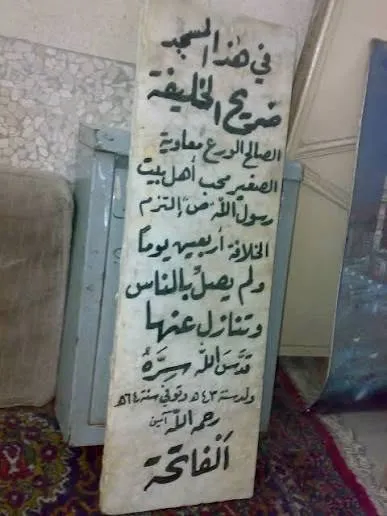 في هذا المسجد
ضريح الخليفة
الصالح الورع معاوية
الصغير محب أهل بيت
رسول الله ص إلتزم
الخلافة أربعين يوماً
ولم يصلِّ بالناس
وتنازل عنها
قدّس الله سرّه
ولد سنة ٤٣هـ وتوفي سنة ٦٤هـ
رحمه الله آمين
الفاتحة